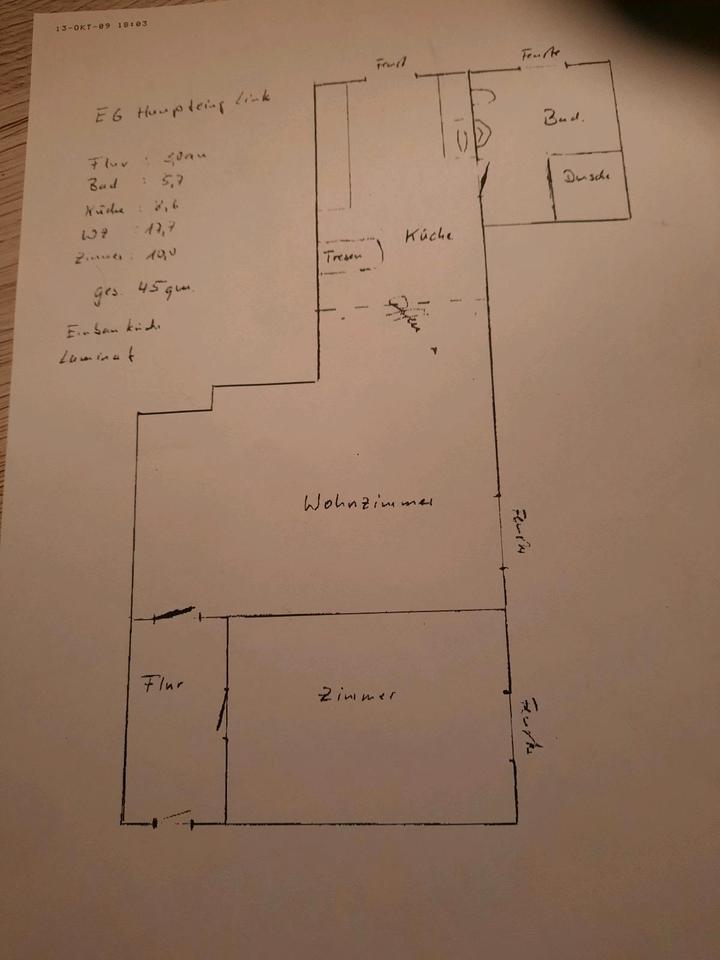 13-OKT-09 18:03
EG Haupteing Link
Flur :
Bad : 5,7
Küche : 8,6
WZ : 17,7
Zimmer : 10,0
ges. 45 qm.
Einbauküche
Laminat
Fenst
Fenste
Bad.
Dusche
Küche
Tresen
Wohnzimmer
Fenste
Flur
Zimmer
Fenste